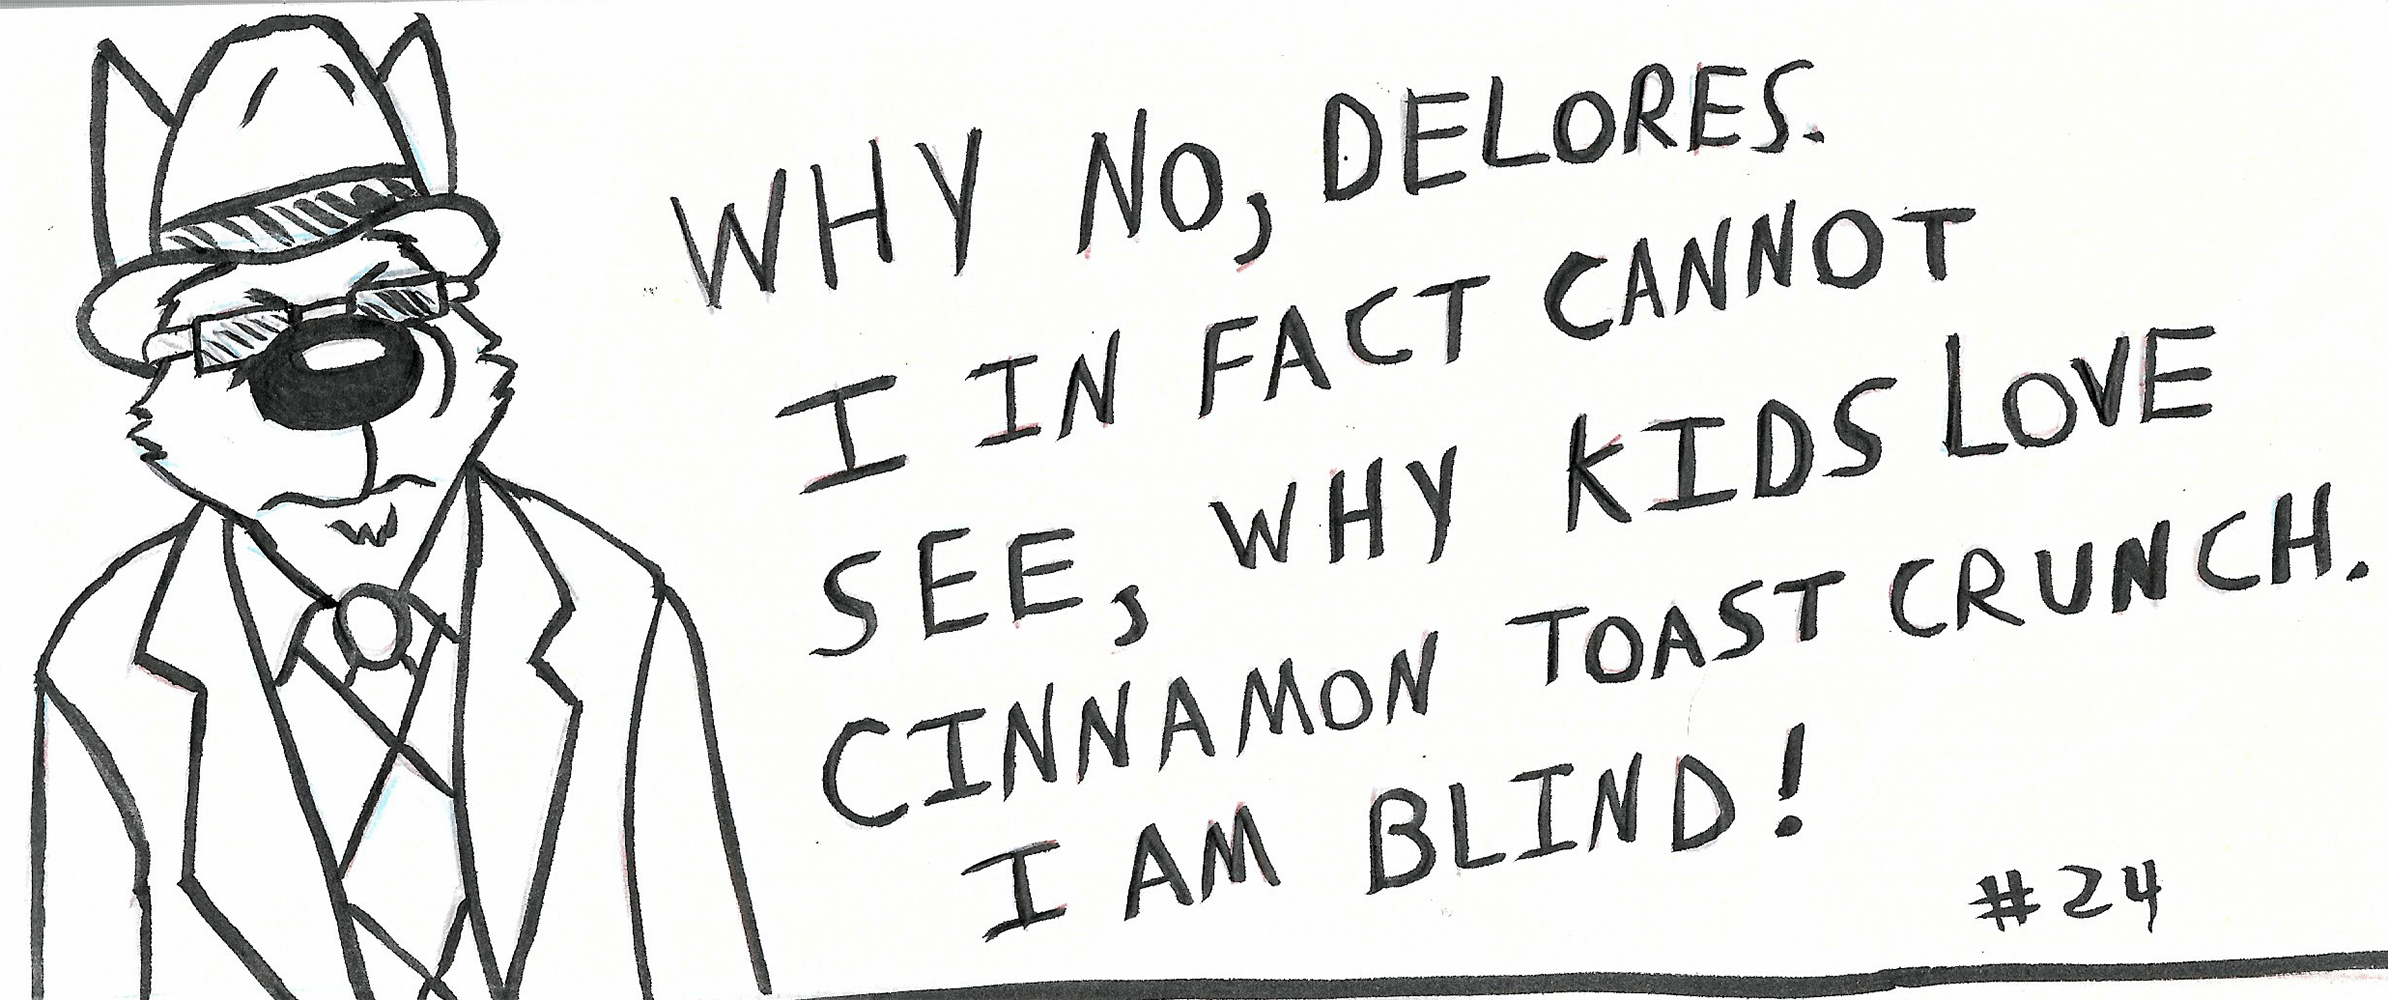 WHY NO, DELORES.
I IN FACT CANNOT
SEE, WHY KIDS LOVE
CINNAMON TOAST CRUNCH.
I AM BLIND!
#24